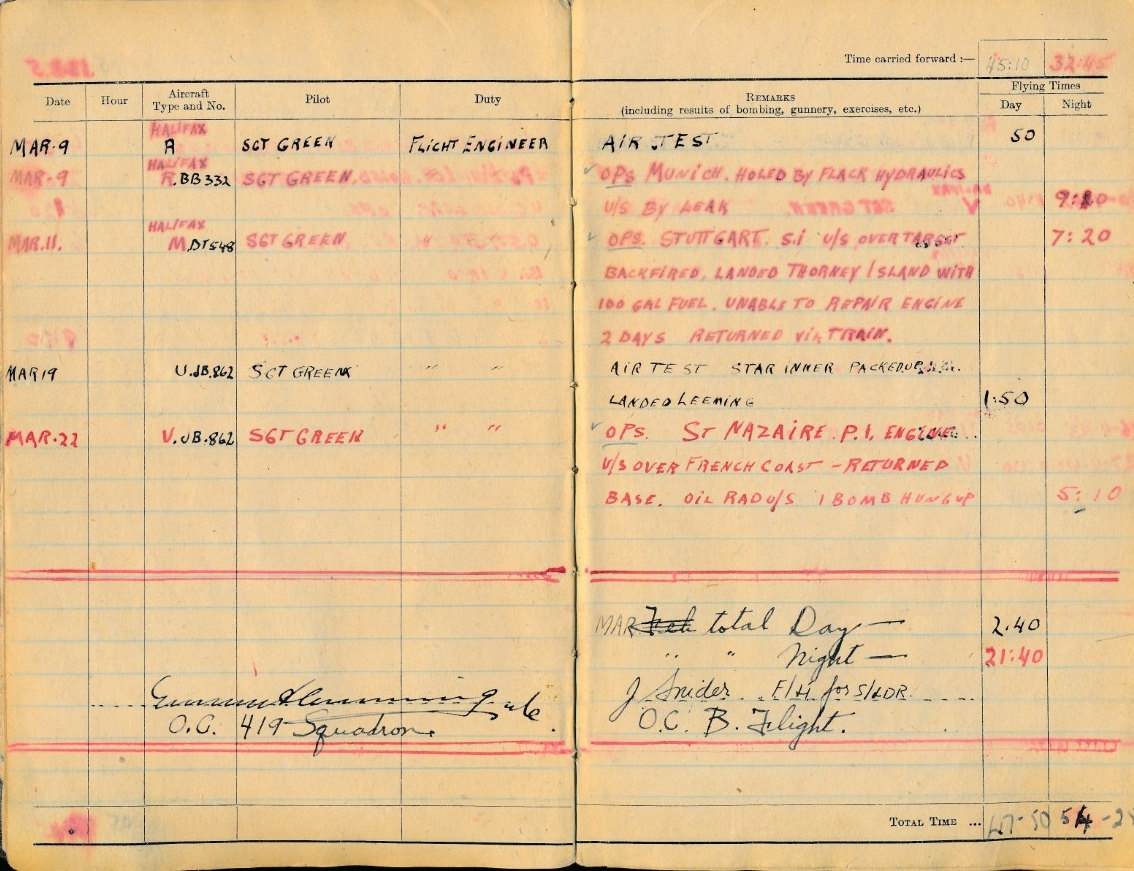 Time carried forward :— 45:10 32:45
Date Hour Aircraft Type and No. Pilot Duty REMARKS (including results of bombing, gunnery, exercises, etc.) Flying Times Day Night
MAR·9 HALIFAX R SGT GREEN FLIGHT ENGINEER AIR TEST 50
MAR·9 HALIFAX R.BB332 SGT GREEN. OPS MUNICH. HOLED BY FLACK HYDRAULICS
U/S BY LEAK
MAR.11. HALIFAX M.DT548 SGT GREEN OPS. STUTTGART. S.I U/S OVER TARGET 7:20
BACKFIRED. LANDED THORNEY ISLAND WITH
100 GAL FUEL. UNABLE TO REPAIR ENGINE
2 DAYS RETURNED VIA TRAIN.
MAR19 U.JB.862 SGT GREEN " " AIR TEST STAR INNER PACKED UP
LANDED LEEMING 1:50
MAR·22 V.JB.862 SGT GREEN " " OPS. ST NAZAIRE. P.I. ENGINE
U/S OVER FRENCH COAST – RETURNED
BASE. OIL RAD U/S 1 BOMB HUNG UP 5:10
MAR Feb total Day — 2.40
" " Night — 21:40
J Snider F/Lt. for S/LDR.
O.C. 419 Squadron.
O.C. B. Flight.
TOTAL TIME ... 47-50